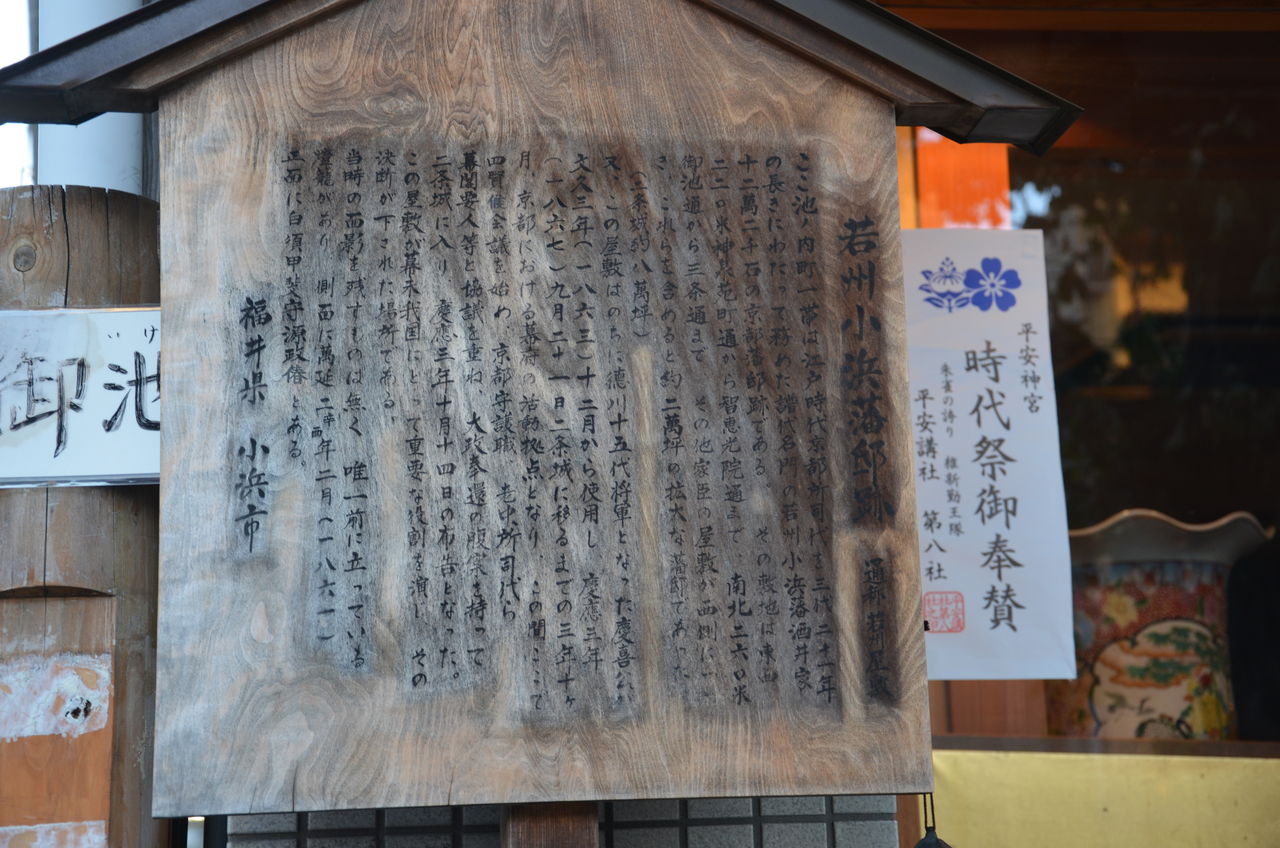 若州小浜藩邸跡
ここ池ノ内町一帯は江戸時代京都所司代を三代 二十一年
の長きにわたって務めた譜代名門の若州小浜藩酒井家
十二萬二千石の京都藩邸跡である その敷地は東西
二二〇米神泉苑町通から智恵光院通まで 南北二六〇米
御池通から三条通まで その他家臣の屋敷が西側に
これらを含めると約二萬坪の拡大な藩邸であった
(二条城約八萬坪)
又、この屋敷はのちに徳川十五代将軍となった慶喜公が
文久三年(一八六三)十二月から使用し 慶應三年
(一八六七)九月二十一日二条城に移るまでの三年十ヶ
月、京都における幕府の活動拠点となり、この間ここで
四賢侯会議を始め 京都守護職、老中所司代ら
幕閣要人等と協議を重ね、大政奉還の腹案を持って
二条城に入り 慶應三年十月十四日の布告となった。
この屋敷が幕末我国にとって重要な役割を演じ その
決断が下された場所である。
当時の面影を残すものは無く 唯一前に立っている
燈籠があり 側面に萬延二辛酉年二月(一八六一)
正面に自須甲斐守源政
とある。
福井県 小浜市
平安神宮
時代祭御奉賛
朱雀の誇り 維新勤王隊
平安講社 第八社
いけ
御池